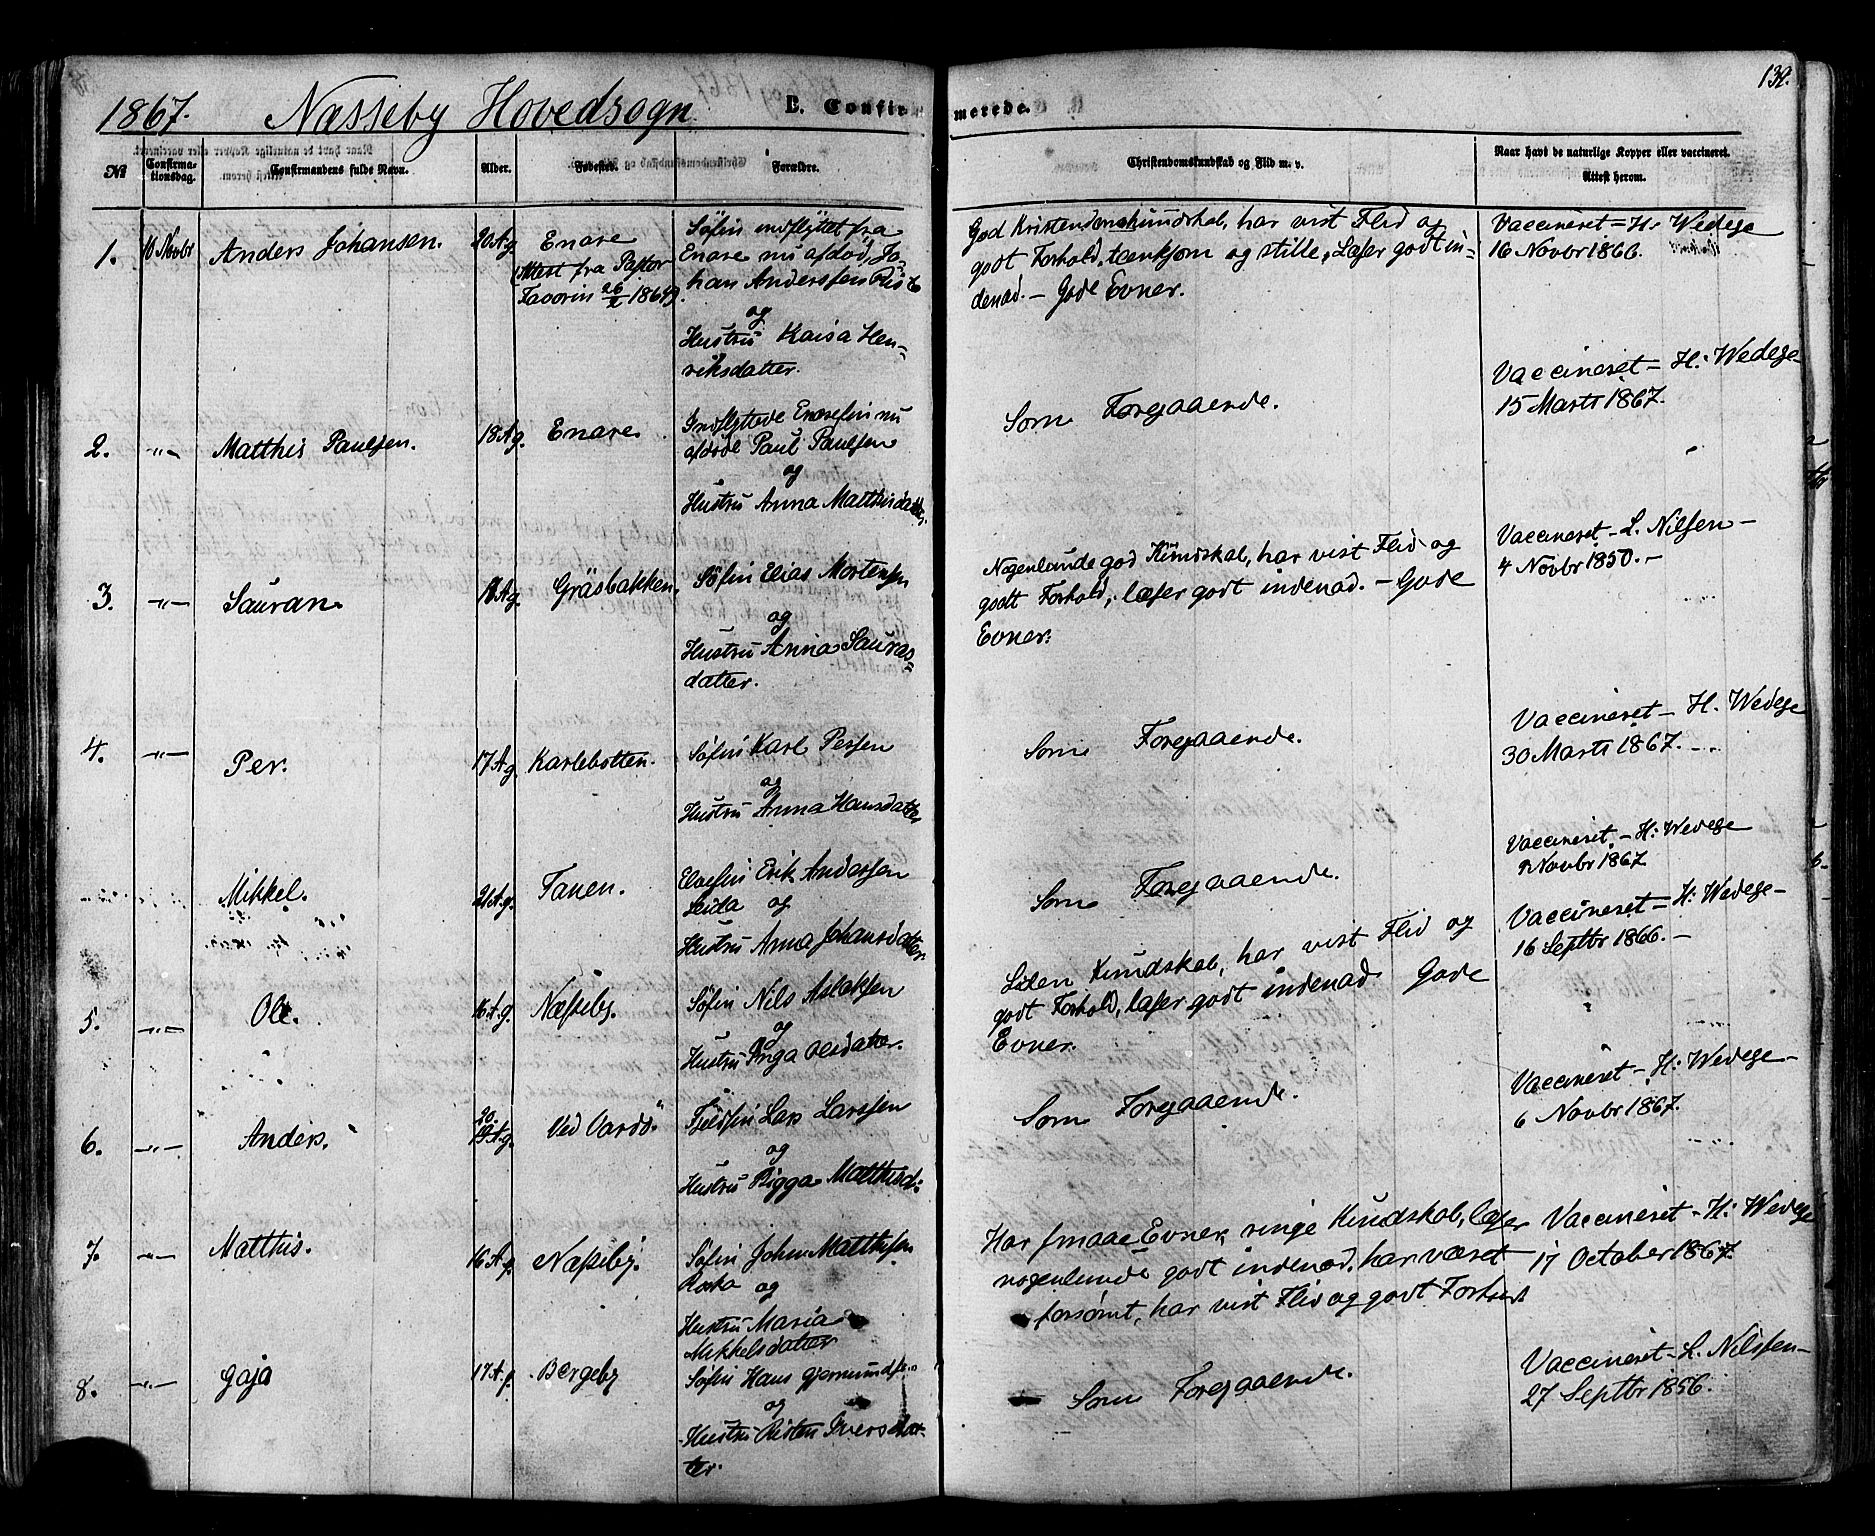 1867. Næsseby Hovedsogn. B. Confirmerede. 139.
No
Confirmationsdag.
Confirmandens fulde Navn.
Alder.
Fødested.
Forældre.
Christendomskundskab og Flid m. v.
Naar havt de naturlige Kopper eller vaccineret.
Attest herom.
1. 10 Novbr Anders Johansen. 20 Ag Enare
(Attest fra Pastor
26/2 1864)
Søfin indflyttet fra
Enare nu afdød, Jo-
han Anderssen
og
Hustru Kaisa Hen-
riksdatter.
God Kristendomskundskab, har vist Flid og
godt Forhold, tænksom og stille, Læser godt in-
denad. – Gode Evner.
Vaccineret – H: Wedege
16 Novbr 1866.
2. -"- Matthis Paulsen. 18 Ag. Enare.
Indflyttede Enarefin nu
afdøde Paul Paulsen
og
Hustru Anna Matthisdatter.
Som Foregaaende.
Vaccineret – H: Wedege –
15 Marts 1867.
3. -"- Sauran. Ag. Gräsbakken.
Søfin Elias Mortensen
og
Hustru Anna Sauras-
datter.
Nogenlunde god Kundskab, har vist Flid og
godt Forhold, læser godt indenad. – Gode
Evner.
Vaccineret – L. Nilsen –
4 Novbr 1850. –
4. -"- Per. 17 Ag Karlebotten.
Søfin Karl Perssen
og
Hustru Anna Hansdatter
Som Foregaaende.
Vaccineret – H. Wedege
30 Marts 1867. –
Mikkel. 21 Ag. Tanen.
Elvefin Erik Anderssen
og
Hustru Anna Johansdatter.
Som Foregaaende.
Vaccineret – H: Wedege
2 Novbr 1867
5. -"- Ole. 16 Ag. Næsseby.
Søfin Nils Aslaksen
og
Hustru Inga Olsdatter.
Liden Kundskab, har vist Flid og
godt Forhold, læser godt indenad. Gode
Evner.
Vaccineret – H: Wedege –
16 Septbr 1866. –
6. -"- Anders. 20. 19 Ag. Ved Vardö.
Fjeldfin Lars Larssen
og
Hustru Rigga Matthisd:
Som Foregaaende.
Vaccineret – H: Wedege –
6 Novbr 1867.
7. -"- Matthis. 16 Ag. Næsseby.
Søfin John Matthisen
og
Hustru Maria
Mikkelsdatter
Har smaae Evner, ringe Kundskab, læser
nogenlunde godt indenad, har været
forsømt, har vist Flid og godt Forhold
Vaccineret – H: Wedege
17 October 1867.
8. -"- Gaja 17 Ag. Bergeby
Søfin Hans
og
Hustru Risten Iversdat-
ter.
Som Foregaaende.
Vaccineret – L. Nilssen –
27 Septbr 1856.